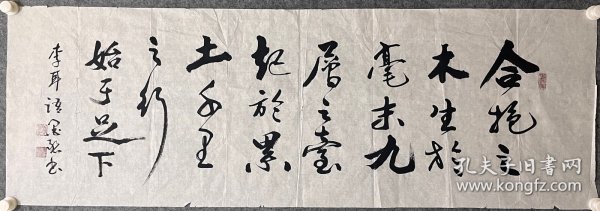 合抱之
木生於
毫末九
層之臺
起於累
土千里
之行
始于足下
李耳语
书
孔夫子旧书网
www.kongfz.com